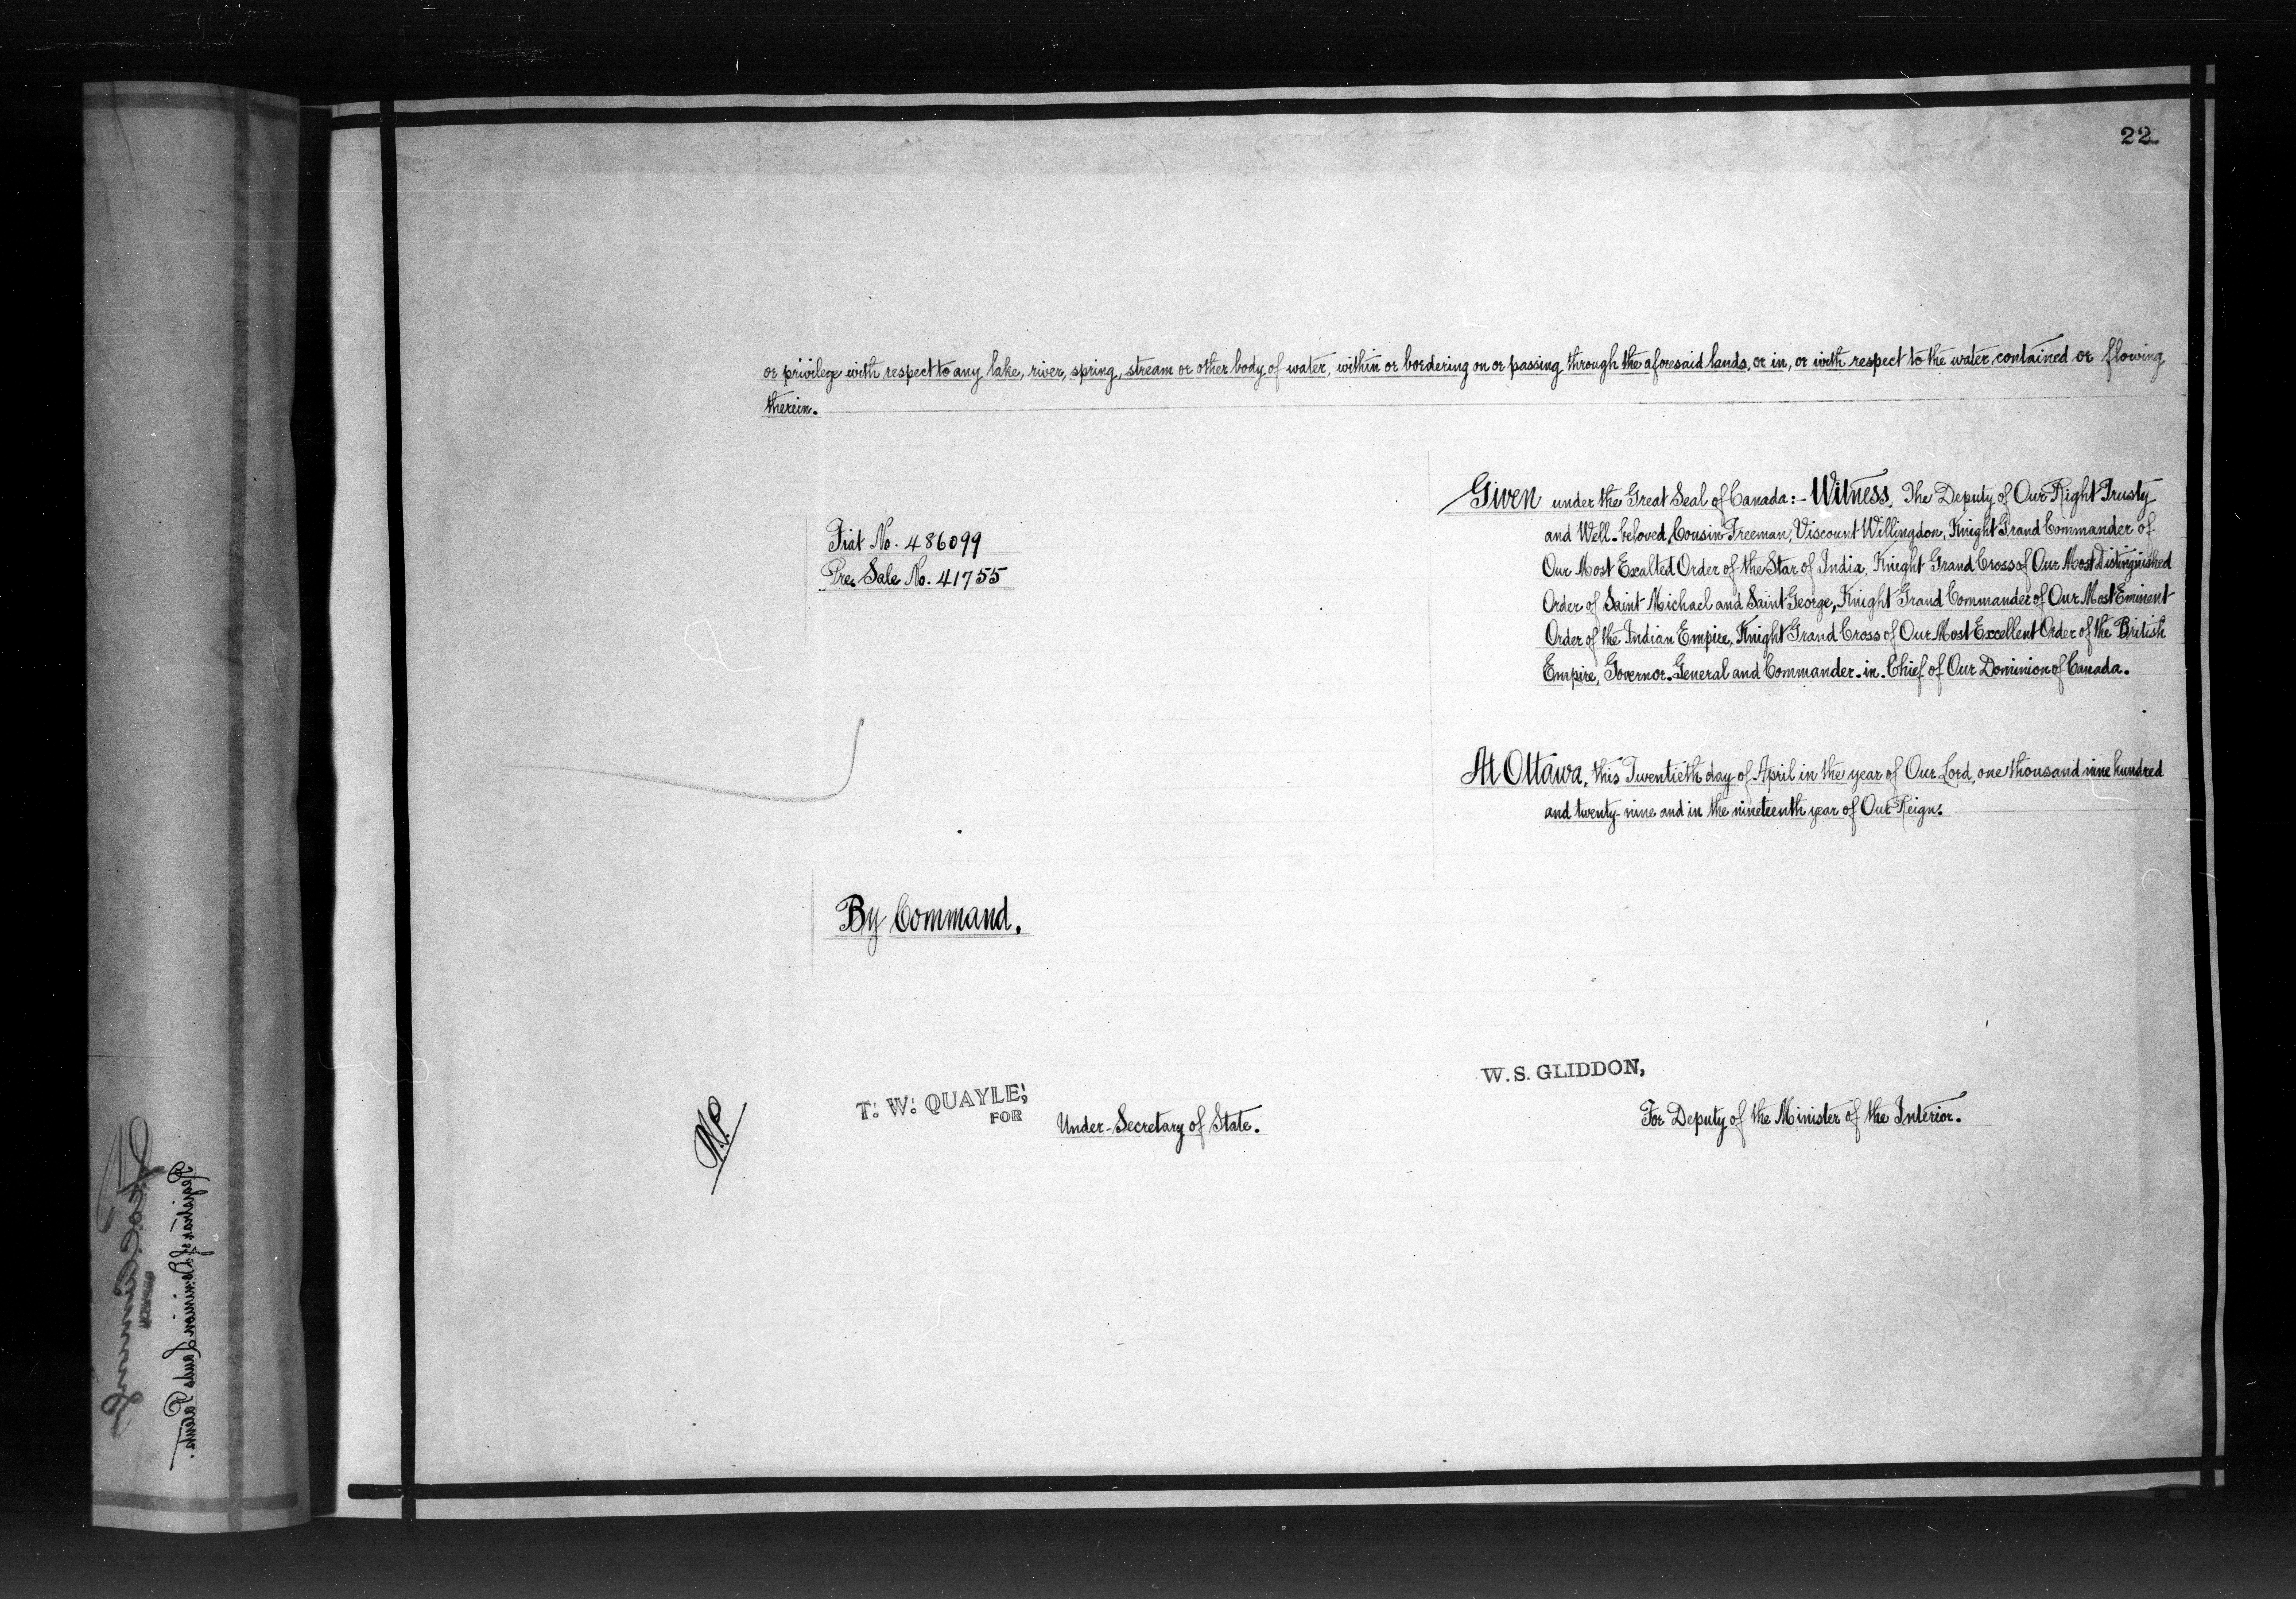 22
or privilege with respect to any lake, river, spring, stream or other body of water, within or bordering on or passing through the aforesaid lands, or in, or with respect to the water, contained or flowing
therein.
Fiat No. 486099
Pre. Sale No. 41755
Given under the Great Seal of Canada:- Witness, The Deputy of Our Right Trusty
and Well-beloved, Cousin Freeman, Viscount Willingdon, Knight Grand Commander of
Our Most Exalted Order of the Star of India, Knight Grand Cross of Our Most Distinguished
Order of Saint Michael and Saint George, Knight Grand Commander of Our Most Eminent
Order of the Indian Empire, Knight Grand Cross of Our Most Excellent Order of the British
Empire, Governor-General and Commander-in-Chief of Our Dominion of Canada.
At Ottawa, this Twentieth day of April in the year of Our Lord, one thousand nine hundred
and twenty-nine and in the nineteenth year of Our Reign.
By Command.
W. S. GLIDDON,
For Deputy of the Minister of the Interior.
T. W. QUAYLE,
FOR
Under-Secretary of State.
Registrar of Dominion Lands Patents.